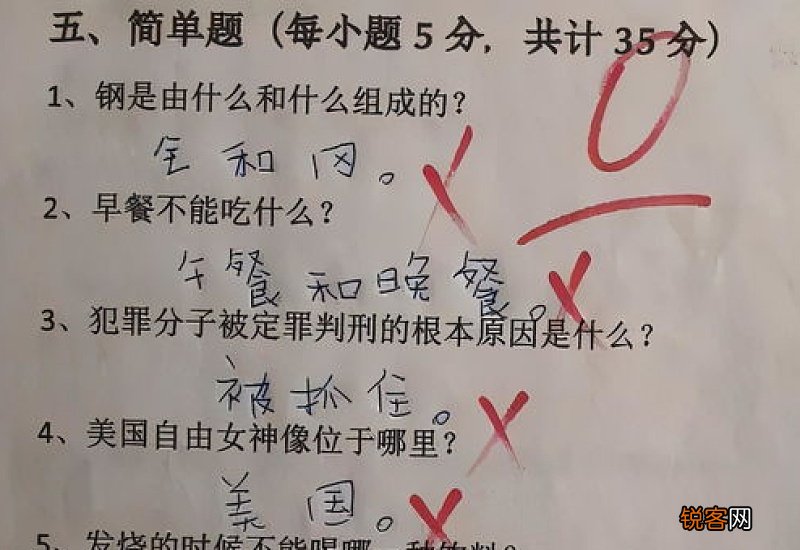 五、简单题（每小题 5 分，共计 35 分）
0
1、钢是由什么和什么组成的？
钅和冈。
2、早餐不能吃什么？
午餐和晚餐。
3、犯罪分子被定罪判刑的根本原因是什么？
被抓住。
4、美国自由女神像位于哪里？
美国。
5、发烧的时候不能喝哪一种饮料？
锐客网